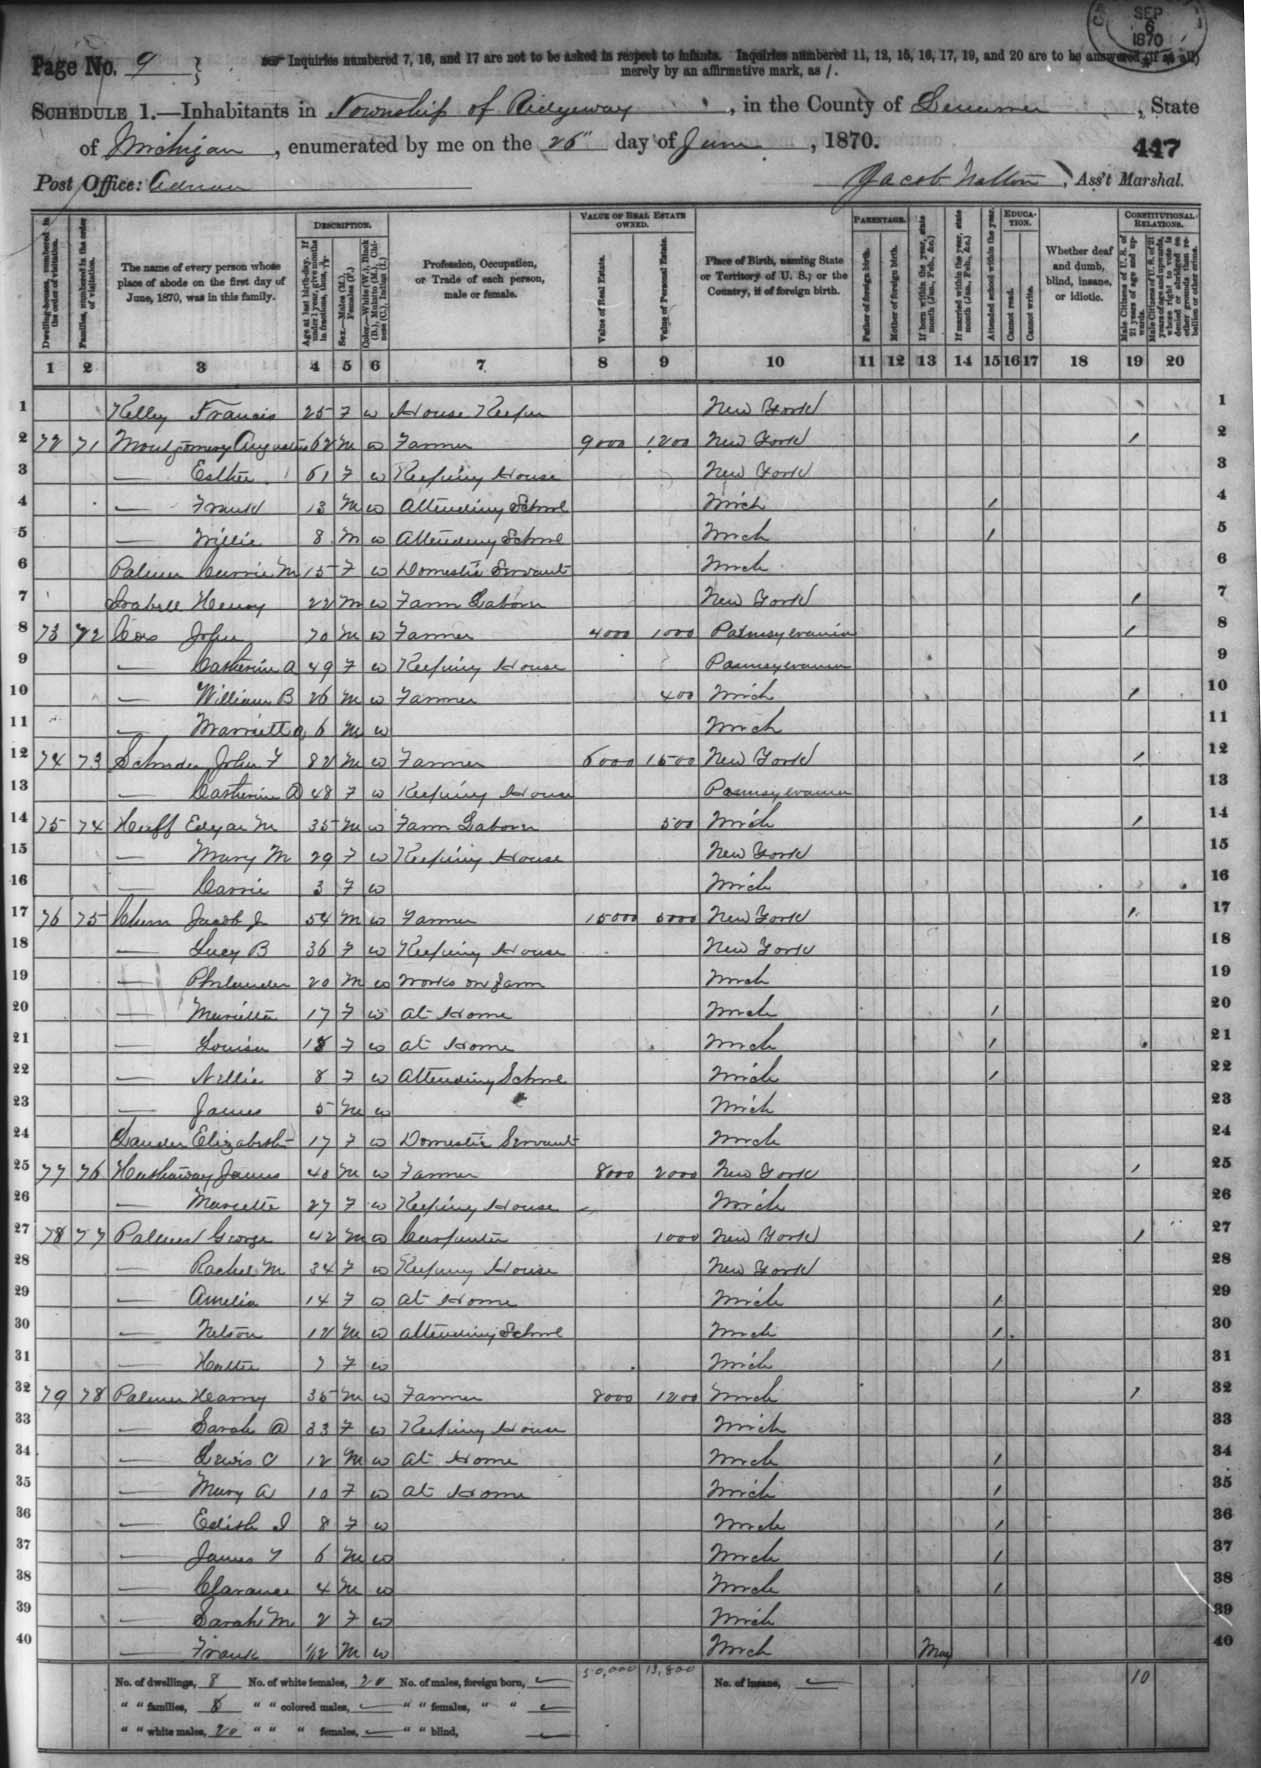 SEP
6
1870
Page No. 9
Inquiries numbered 7, 16, and 17 are not to be asked in respect to infants. Inquiries numbered 11, 12, 15, 16, 17, 19, and 20 are to be answered (if at all)
merely by an affirmative mark, as /.
SCHEDULE 1.—Inhabitants in Township of Ridgeway, in the County of Lenawee, State
of Michigan, enumerated by me on the 26" day of June, 1870.
447
Post Office: Adrian
Jacob Walton, Ass't Marshal.
Dwelling-houses, numbered in the order of visitation.
Families, numbered in the order of visitation.
The name of every person whose place of abode on the first day of June, 1870, was in this family.
DESCRIPTION.
Age at last birth-day. If under 1 year, give months in fractions, thus, 3/12
Sex.—Males (M.), Females (F.)
Color.—White (W.), Black (B.), Mulatto (M.), Chinese (C.), Indian (I.)
Profession, Occupation, or Trade of each person, male or female.
VALUE OF REAL ESTATE OWNED.
Value of Real Estate.
Value of Personal Estate.
Place of Birth, naming State or Territory of U. S.; or the Country, if of foreign birth.
PARENTAGE.
Father of foreign birth.
Mother of foreign birth.
If born within the year, state month (Jan., Feb., &c.)
If married within the year, state month (Jan., Feb., &c.)
Attended school within the year.
EDUCATION.
Cannot read.
Cannot write.
Whether deaf and dumb, blind, insane, or idiotic.
CONSTITUTIONAL RELATIONS.
Male Citizens of U. S. of 21 years of age and upwards.
Male Citizens of U. S. of 21 years of age and upwards, whose right to vote is denied or abridged on other grounds than rebellion or other crime.
1 2 3 4 5 6 7 8 9 10 11 12 13 14 15 16 17 18 19 20
1 Kelley Francis 25 F W House Keeper New York 1
2 72 71 Montgomery Augustus 62 M W Farmer 9000 1200 New York / 2
3 — Esther 61 F W Keeping House New York 3
4 — Frank 13 M W Attending School Mich / 4
5 — Willie 8 M W Attending School Mich / 5
6 Palmer Carrie M 15 F W Domestic Servant Mich 6
7 Isabell Henry 22 M W Farm Labor New York / 7
8 73 72 John 70 M W Farmer 4000 1000 Pennsylvania / 8
9 — Catherin A 49 F W Keeping House Pennsylvania 9
10 — William B 26 M W Farmer 400 Mich / 10
11 — 6 M W Mich 11
12 74 73 John F 82 M W Farmer 6000 1500 New York / 12
13 — Catherin A 48 F W Keeping House Pennsylvania 13
14 75 74 Huff Edgar M 35 M W Farm Labor 500 Mich / 14
15 — Mary M 29 F W Keeping House New York 15
16 — Carrie 3 F W Mich 16
17 76 75 Jacob J 54 M W Farmer 15000 5000 New York / 17
18 — Lucy B 36 F W Keeping House New York 18
19 — Philander 20 M W Works on Farm Mich 19
20 — Marietta 17 F W At Home Mich / 20
21 — Louisa F W At Home Mich / 21
22 — Nellie 8 F W Attending School Mich / 22
23 — James 5 M W Mich 23
24 Elizabeth 17 F W Domestic Servant Mich 24
25 77 76 Hathaway James 40 M W Farmer 8000 2000 New York / 25
26 — Marcette 27 F W Keeping House Mich 26
27 78 77 Palmer George 42 M W Carpenter 1000 New York / 27
28 — Rachel M 34 F W Keeping House New York 28
29 — Amelia 14 F W At Home Mich / 29
30 — Nelson 12 M W Attending School Mich / 30
31 — Hattie 7 F W Mich / 31
32 79 78 Palmer Harry 35 M W Farmer 8000 1200 Mich / 32
33 — Sarah A 33 F W Keeping House Mich 33
34 — Lewis C 12 M W At Home Mich / 34
35 — Mary A 10 F W At Home Mich / 35
36 — Edith I 8 F W Mich / 36
37 — James T 6 M W Mich / 37
38 — Clarance 4 M W Mich / 38
39 — Sarah M 2 F W Mich 39
40 — Frank 1/12 M W Mich May 40
No. of dwellings, 8 No. of white females, 20 No. of males, foreign born, — 50,000 13,800 No. of insane, — 10
" " families, 8 " " colored males, — " " females, " " —
" " white males, 20 " " " females, — " " blind, —